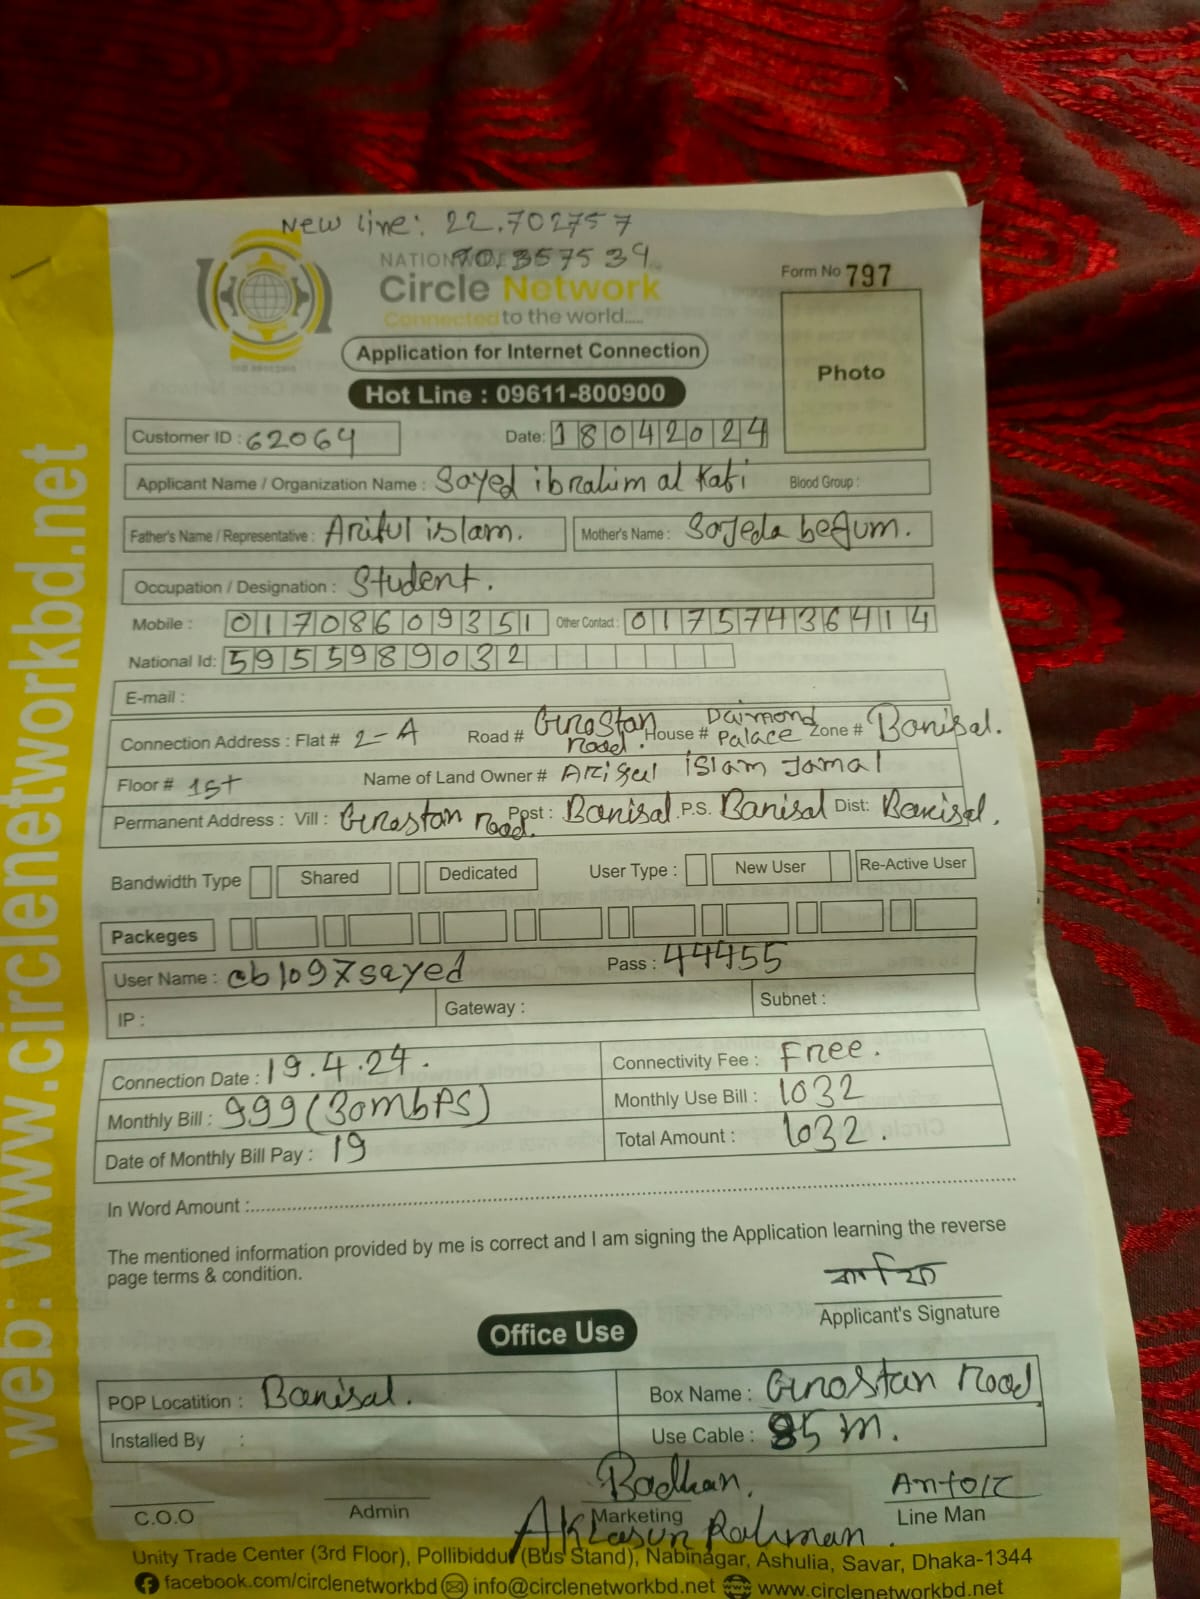 New line: 22.702757
90.357539
NATIONWIDE
Circle Network
Connected to the world.....
Form No 797
Photo
Application for Internet Connection
Hot Line : 09611-800900
Customer ID : 62064 Date: 18042024
Applicant Name / Organization Name : Sayed ibrahim al Kafi Blood Group :
Father's Name / Representative : Ariful islam. Mother's Name : Sajeda begum.
Occupation / Designation : Student.
Mobile : 01708609351 Other Contact : 01757436414
National Id: 5955989032
E-mail :
Connection Address : Flat # 2-A Road # Gorostan Road. House # Daimond Palace Zone # Barisal.
Floor # 1st Name of Land Owner # Ariful islam Jamal
Permanent Address : Vill : Gorostan Road. Post : Barisal. P.S. Barisal Dist: Barisal.
Bandwidth Type Shared Dedicated User Type : New User Re-Active User
Packeges
User Name : cb1097sayed Pass : 44455
IP : Gateway : Subnet :
Connection Date : 19.4.24. Connectivity Fee : Free.
Monthly Bill : 999 (30mbps) Monthly Use Bill : 1032
Date of Monthly Bill Pay : 19 Total Amount : 1032.
In Word Amount :
The mentioned information provided by me is correct and I am signing the Application learning the reverse
page terms & condition.
কাফি
Applicant's Signature
Office Use
POP Locatition : Barisal. Box Name : Gorostan Road
Installed By : Use Cable : 85 m.
Badhan. Antor
C.O.O Admin Marketing Line Man
Rahman
Unity Trade Center (3rd Floor), Pollibiddut (Bus Stand), Nabinagar, Ashulia, Savar, Dhaka-1344
facebook.com/circlenetworkbd info@circlenetworkbd.net www.circlenetworkbd.net
web: www.circlenetworkbd.net